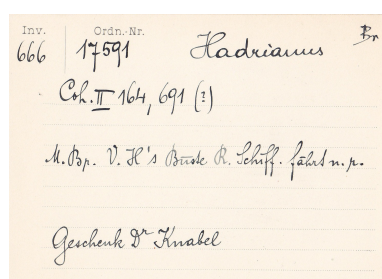 Inv. Ordn.-Nr. Br
666 17591 Hadrianus
Coh. II 164, 691 (?)
M. Br. V. H's Büste R. Schiff. fährt n. r.
Geschenk Dr Knabel